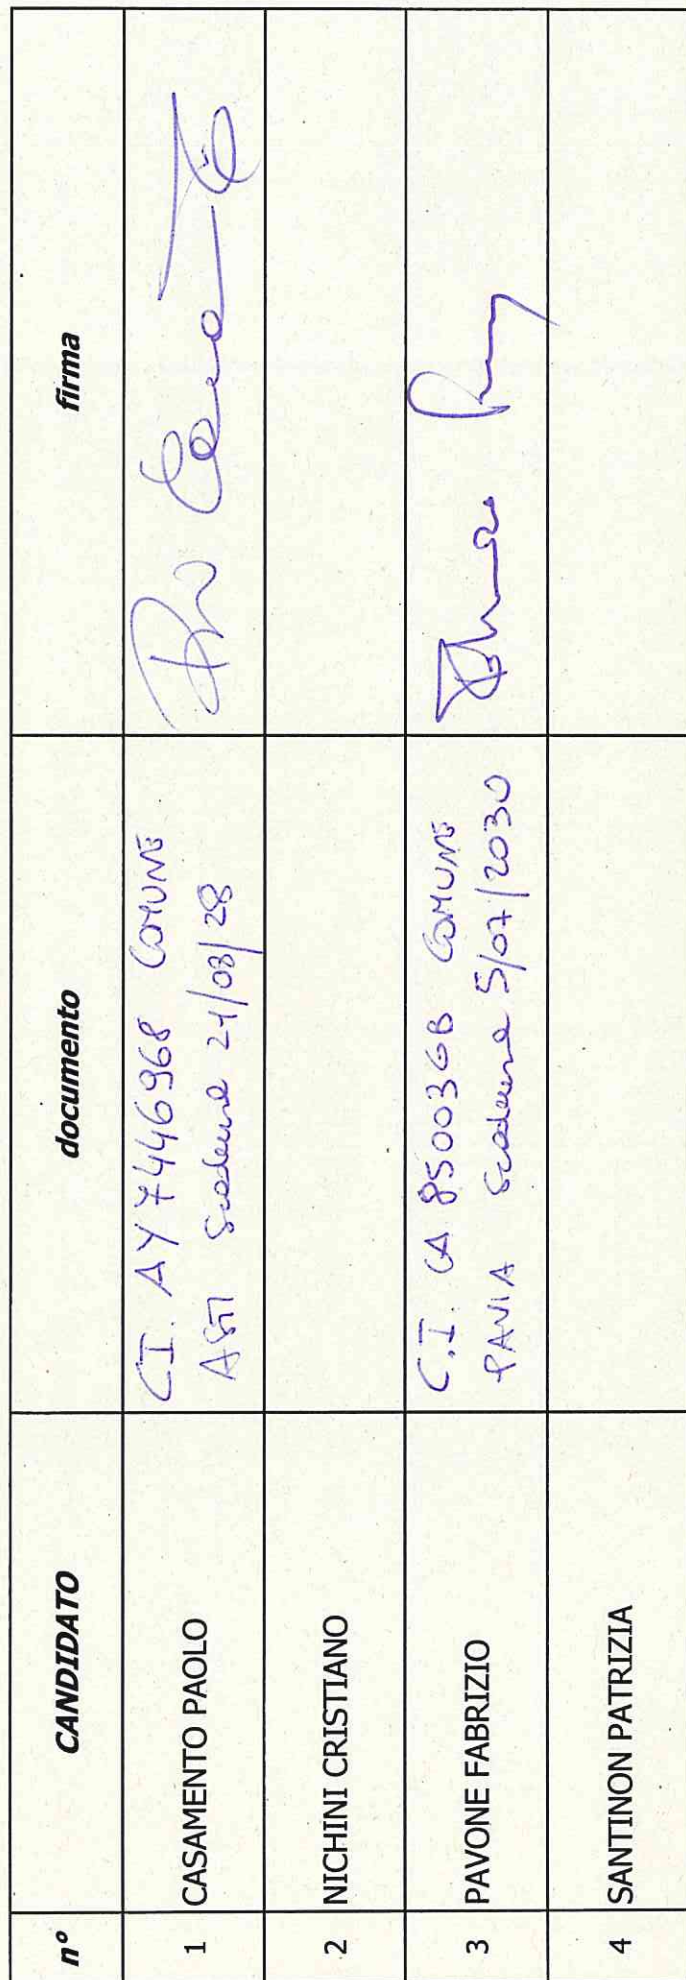 n° CANDIDATO documento firma
1 CASAMENTO PAOLO C.I. AY7446968 COMUNE
ASTI Scadenza 24/03/28
2 NICHINI CRISTIANO
3 PAVONE FABRIZIO C.I. CA 85003GB COMUNE
PAVIA Scadenza 5/07/2030
4 SANTINON PATRIZIA